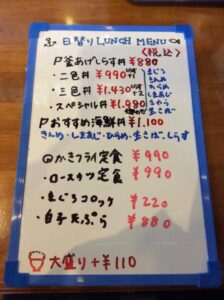 日替り LUNCH MENU
〈税込〉
釜あげしらす丼 ¥880
・二色丼 ¥990
・三色丼 ¥1,430
・スペシャル丼 ¥1,980
まぐろ
きんめ
ひらめ
しまあじ
さわら
生さば
おすすめ海鮮丼 ¥1,100
きんめ・しまあじ・ひらめ・生さば・しらす
◎かきフライ定食 ¥990
・ロースカツ定食 ¥990
・まぐろコロッケ ¥220
・白子天ぷら ¥880
大盛り+¥110